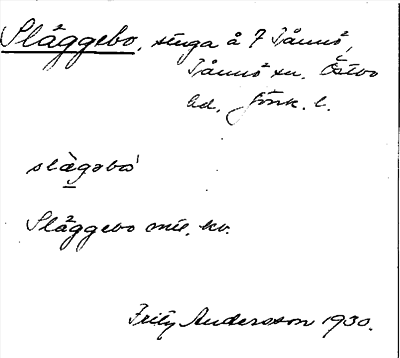 Släggebo, stuga å 7 Tånnö,
Tånnö sn. Östbo
hd. Jönk. l.
slägobo
Släggebo mtl. kv.
Fritz Andersson 1930.